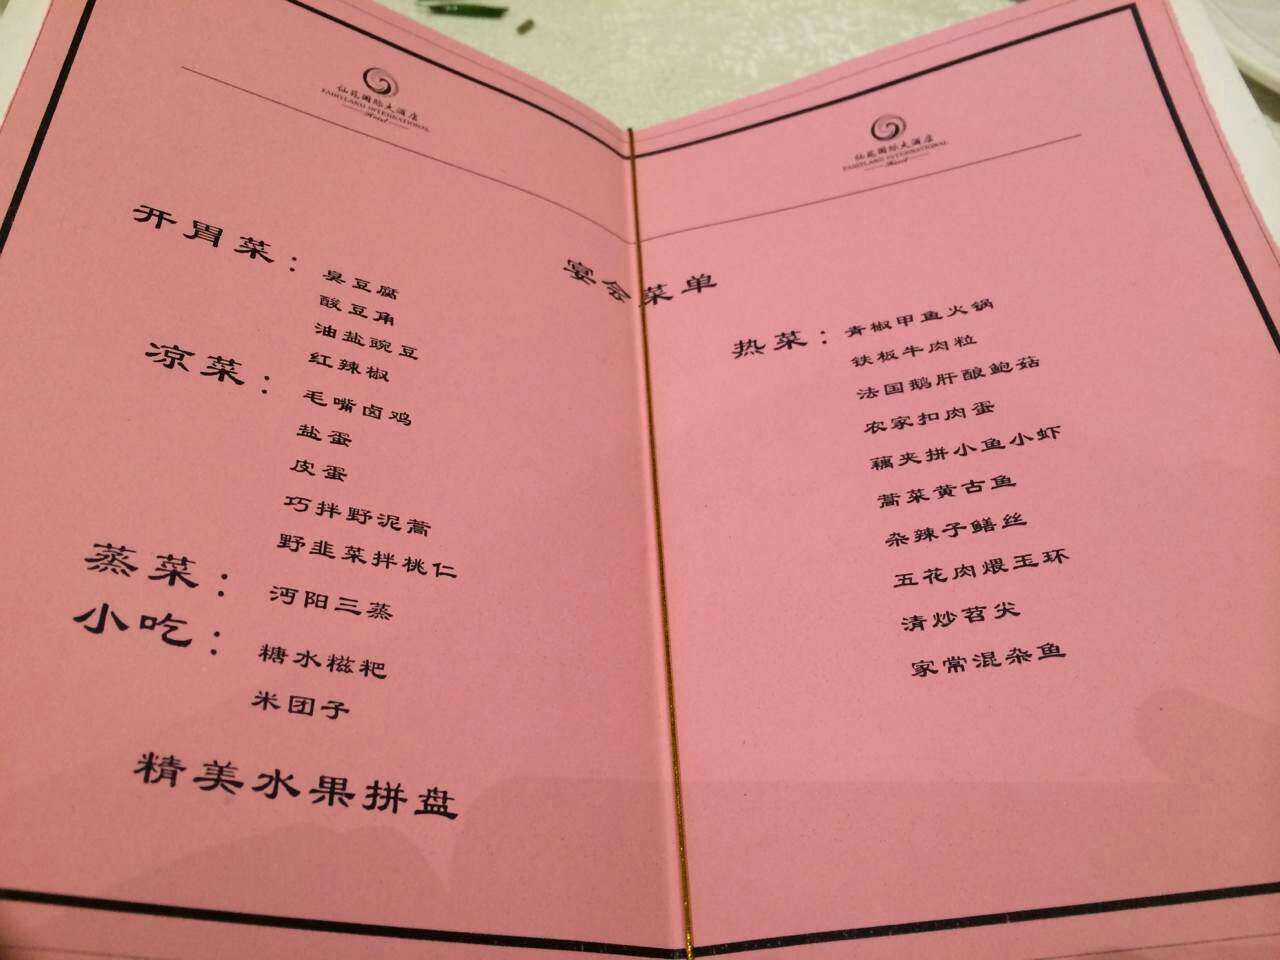 仙苑国际大酒店
FAIRYLAND INTERNATIONAL
Hotel
开胃菜：
臭豆腐
酸豆角
油盐豌豆
红辣椒
凉菜：
毛嘴卤鸡
盐蛋
皮蛋
巧拌野泥蒿
野韭菜拌桃仁
蒸菜：
沔阳三蒸
小吃：
糖水糍粑
米团子
精美水果拼盘
宴会菜单
仙苑国际大酒店
FAIRYLAND INTERNATIONAL
Hotel
热菜：
青椒甲鱼火锅
铁板牛肉粒
法国鹅肝酿鲍菇
农家扣肉蛋
藕夹拼小鱼小虾
蒿菜黄古鱼
杂辣子鳝丝
五花肉煨玉环
清炒苕尖
家常混杂鱼